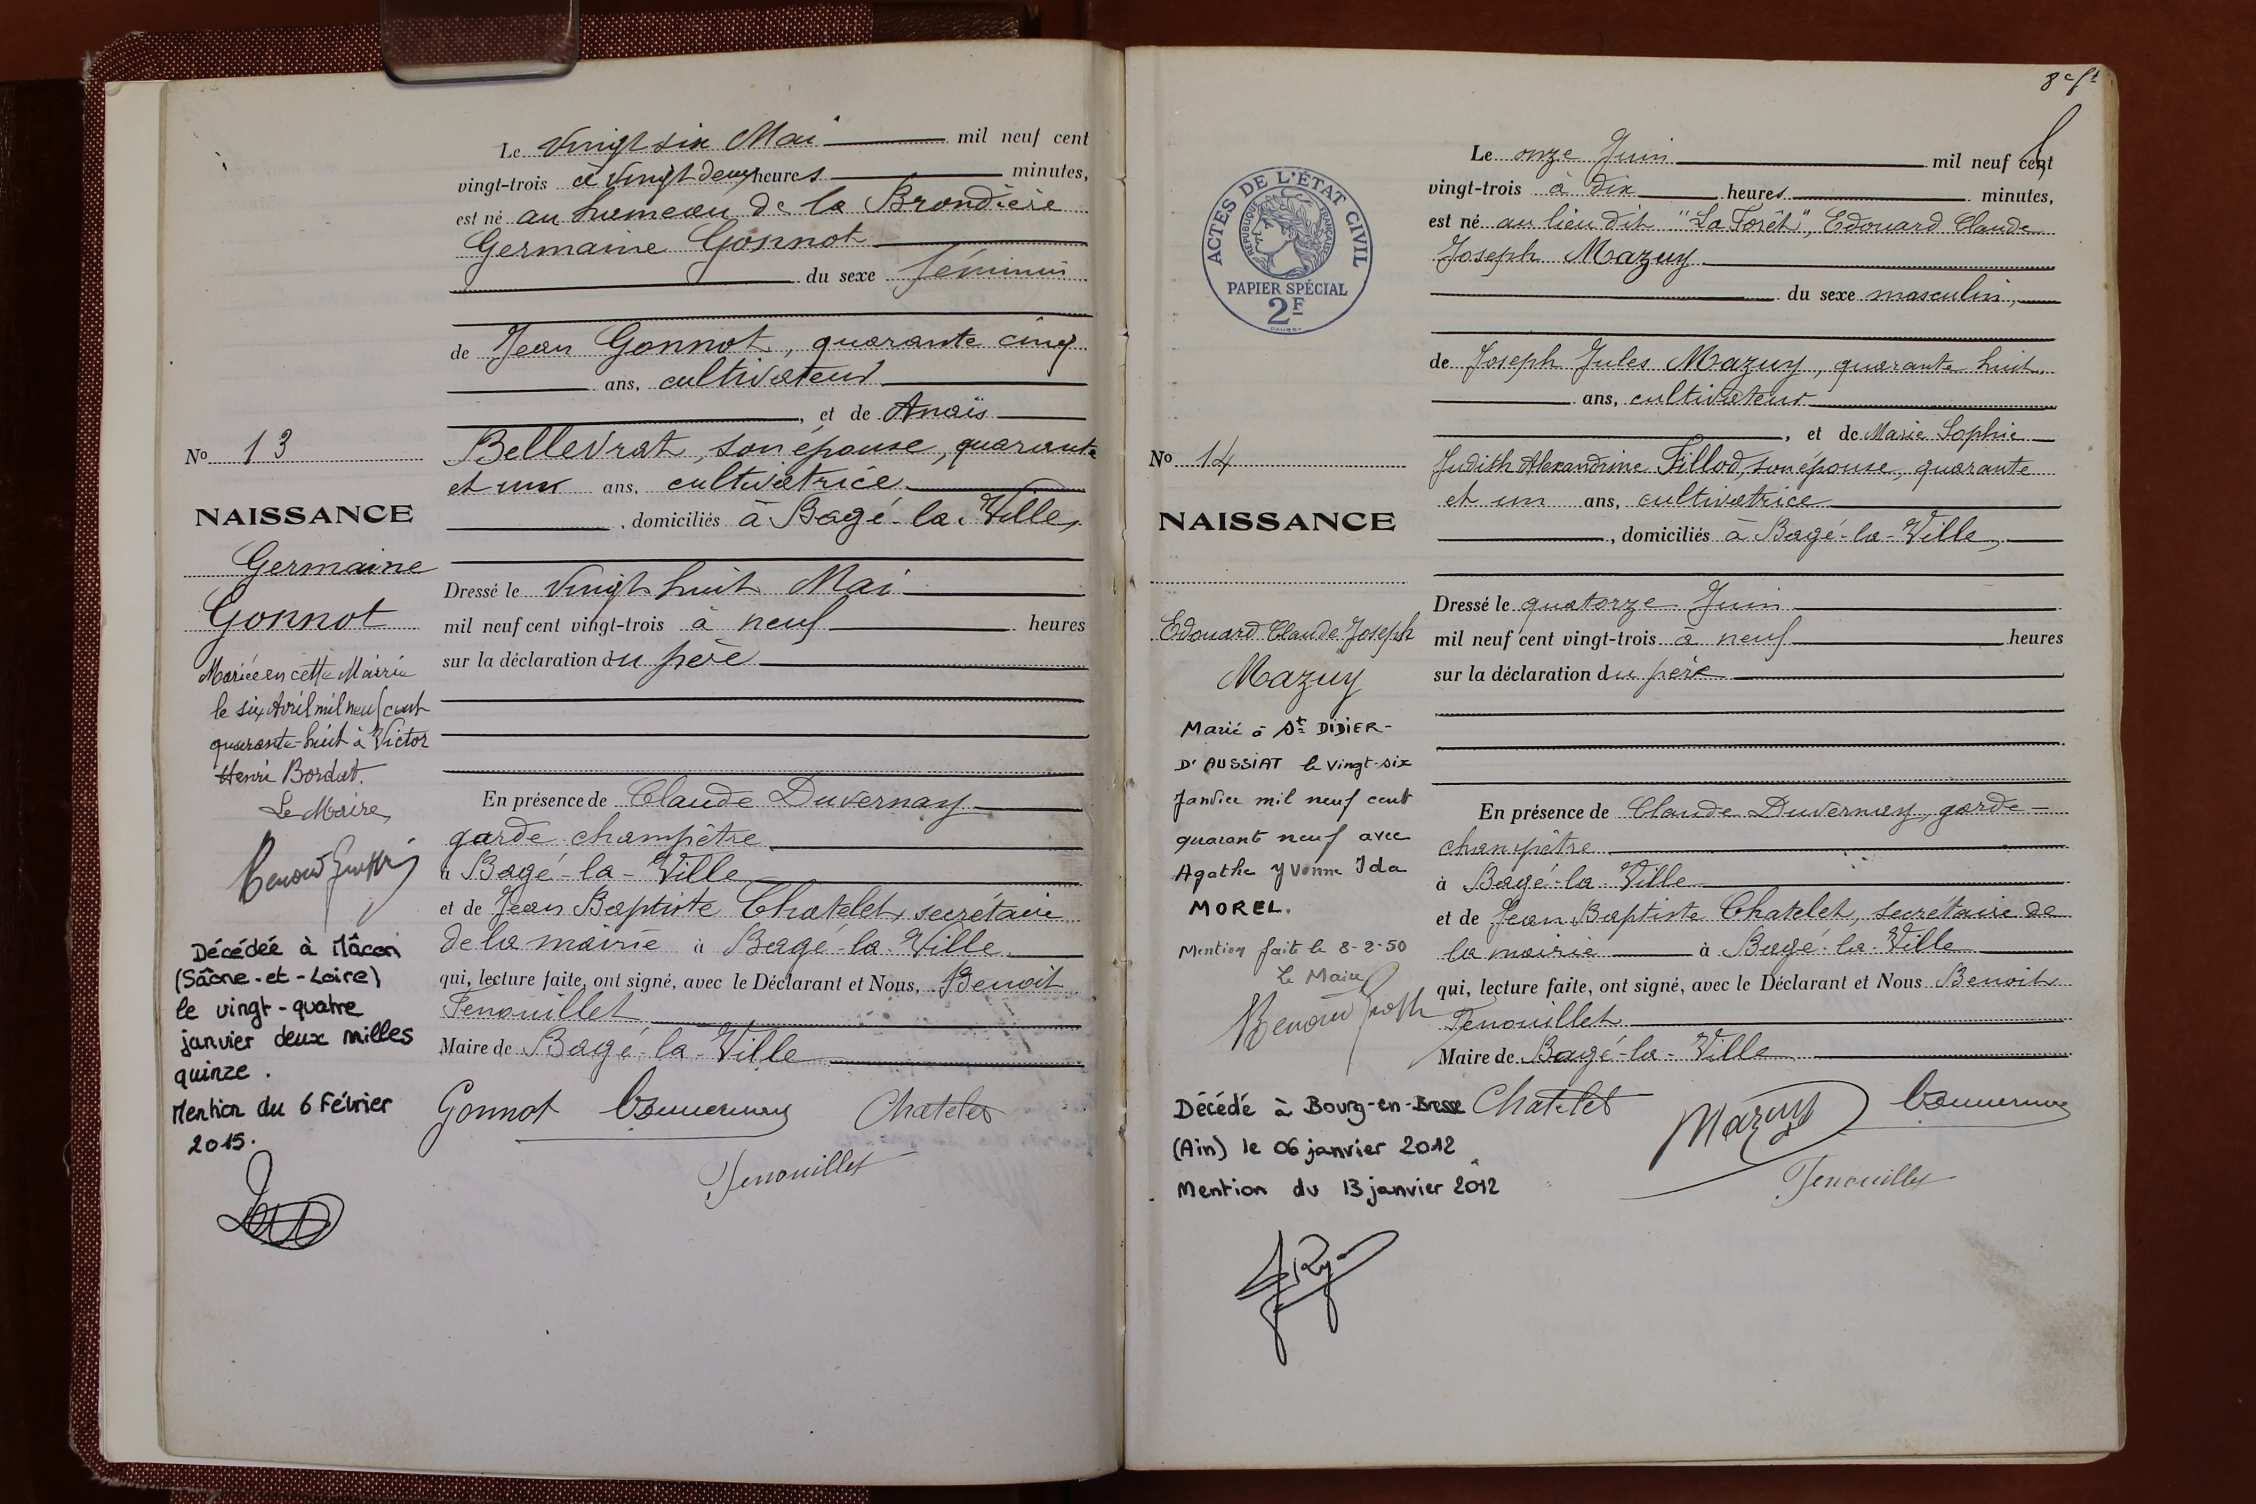 Le vingt six Mai mil neuf cent
vingt-trois à vingt deux heures minutes,
est né au hameau de la Brondière
Germaine Gonnot
du sexe féminin
de Jean Gonnot, quarante cinq
ans, cultivateur
, et de Anaïs
Bellevrat, son épouse, quarante
et un ans, cultivatrice
, domiciliés à Bagé-la-Ville,
Dressé le vingt huit Mai
mil neuf cent vingt-trois à neuf heures
sur la déclaration du père
En présence de Claude Duvernay
garde champêtre
à Bagé-la-Ville
et de Jean Baptiste Chatelet, secrétaire
de la mairie à Bagé-la-Ville
qui, lecture faite, ont signé, avec le Déclarant et Nous, Benoit
Fenouillet
Maire de Bagé-la-Ville
Gonnot Chatelet
Fenouillet
No 13
NAISSANCE
Germaine
Gonnot
Mariée en cette Mairie
le six Avril mil neuf cent
quarante-huit à Victor
Henri Bordat.
Le Maire,
Décédée à Mâcon
(Saône-et-Loire)
le vingt-quatre
janvier deux milles
quinze.
Mention du 6 Février
2015.
8e ft
Le onze Juin mil neuf cent
vingt-trois à dix heures minutes,
est né au lieu dit "La Forêt", Edouard Claude
Joseph Mazuy
du sexe masculin,
de Joseph Jules Mazuy, quarante huit
ans, cultivateur
, et de Marie Sophie
Judith Alexandrine Fillod, son épouse, quarante
et un ans, cultivatrice
, domiciliés à Bagé-la-Ville,
Dressé le quatorze Juin
mil neuf cent vingt-trois à neuf heures
sur la déclaration du père
En présence de Claude Duvernay, garde-
champêtre
à Bagé-la-Ville
et de Jean Baptiste Chatelet, secrétaire de
la mairie à Bagé-la-Ville
qui, lecture faite, ont signé, avec le Déclarant et Nous Benoit
Fenouillet
Maire de Bagé-la-Ville
Chatelet Mazuy
Fenouillet
ACTES DE L'ÉTAT CIVIL
RÉPUBLIQUE FRANÇAISE
PAPIER SPÉCIAL
2F
No 14
NAISSANCE
Edouard Claude Joseph
Mazuy
Marié à St DIDIER-
D'AUSSIAT le vingt-six
Janvier mil neuf cent
quarant neuf avec
Agathe Yvonne Ida
MOREL.
Mention faite le 8-2-50
Le Maire
Décédé à Bourg-en-Bresse
(Ain) le 06 janvier 2012
Mention du 13 janvier 2012